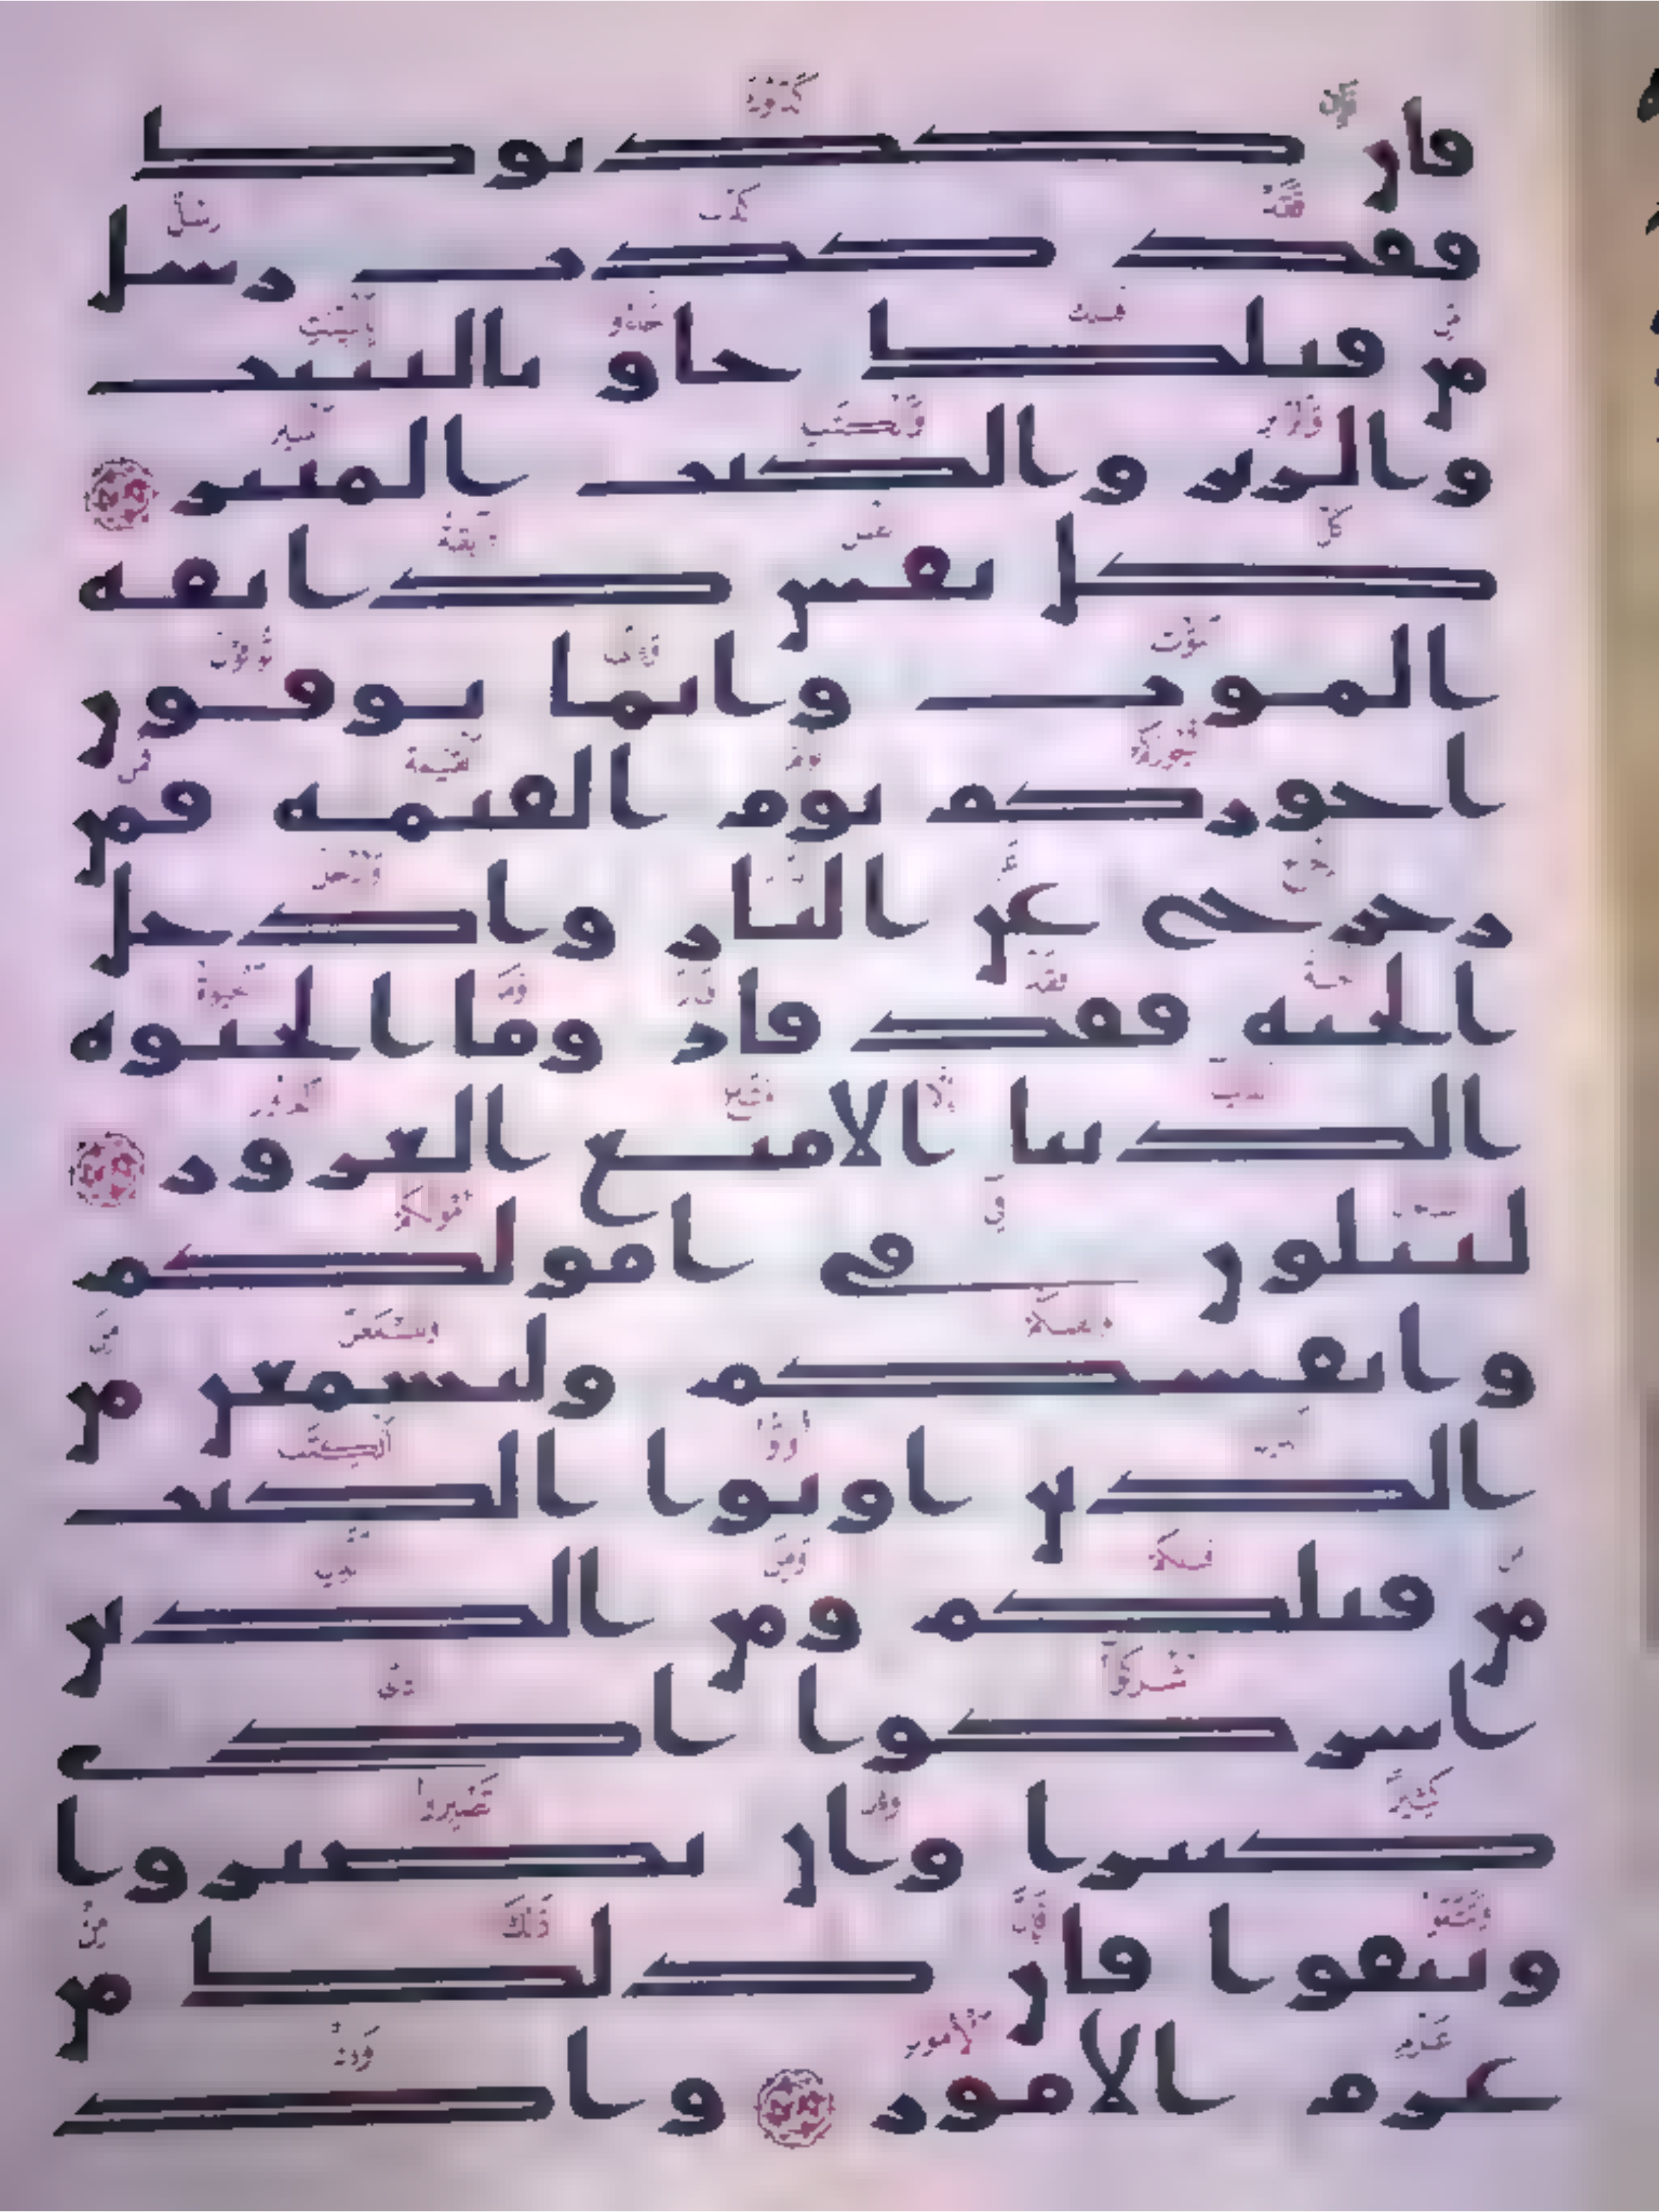 فان كذبوك
فقد كذب رسل
من قبلك جاو بالبينت
والزبر والكتب المنير
كل نفس ذايقة
الموت وانما توفون
اجوركم يوم القيمة فمن
زحزح عن النار وادخل
الجنة فقد فاز وما الحيوة
الدنيا الا متع الغرور
لتبلون في امولكم
وانفسكم ولتسمعن من
الذين اوتوا الكتب
من قبلكم ومن الذين
اشركوا اذى
كثيرا وان تصبروا
وتتقوا فان ذلك من
عزم الامور واذ